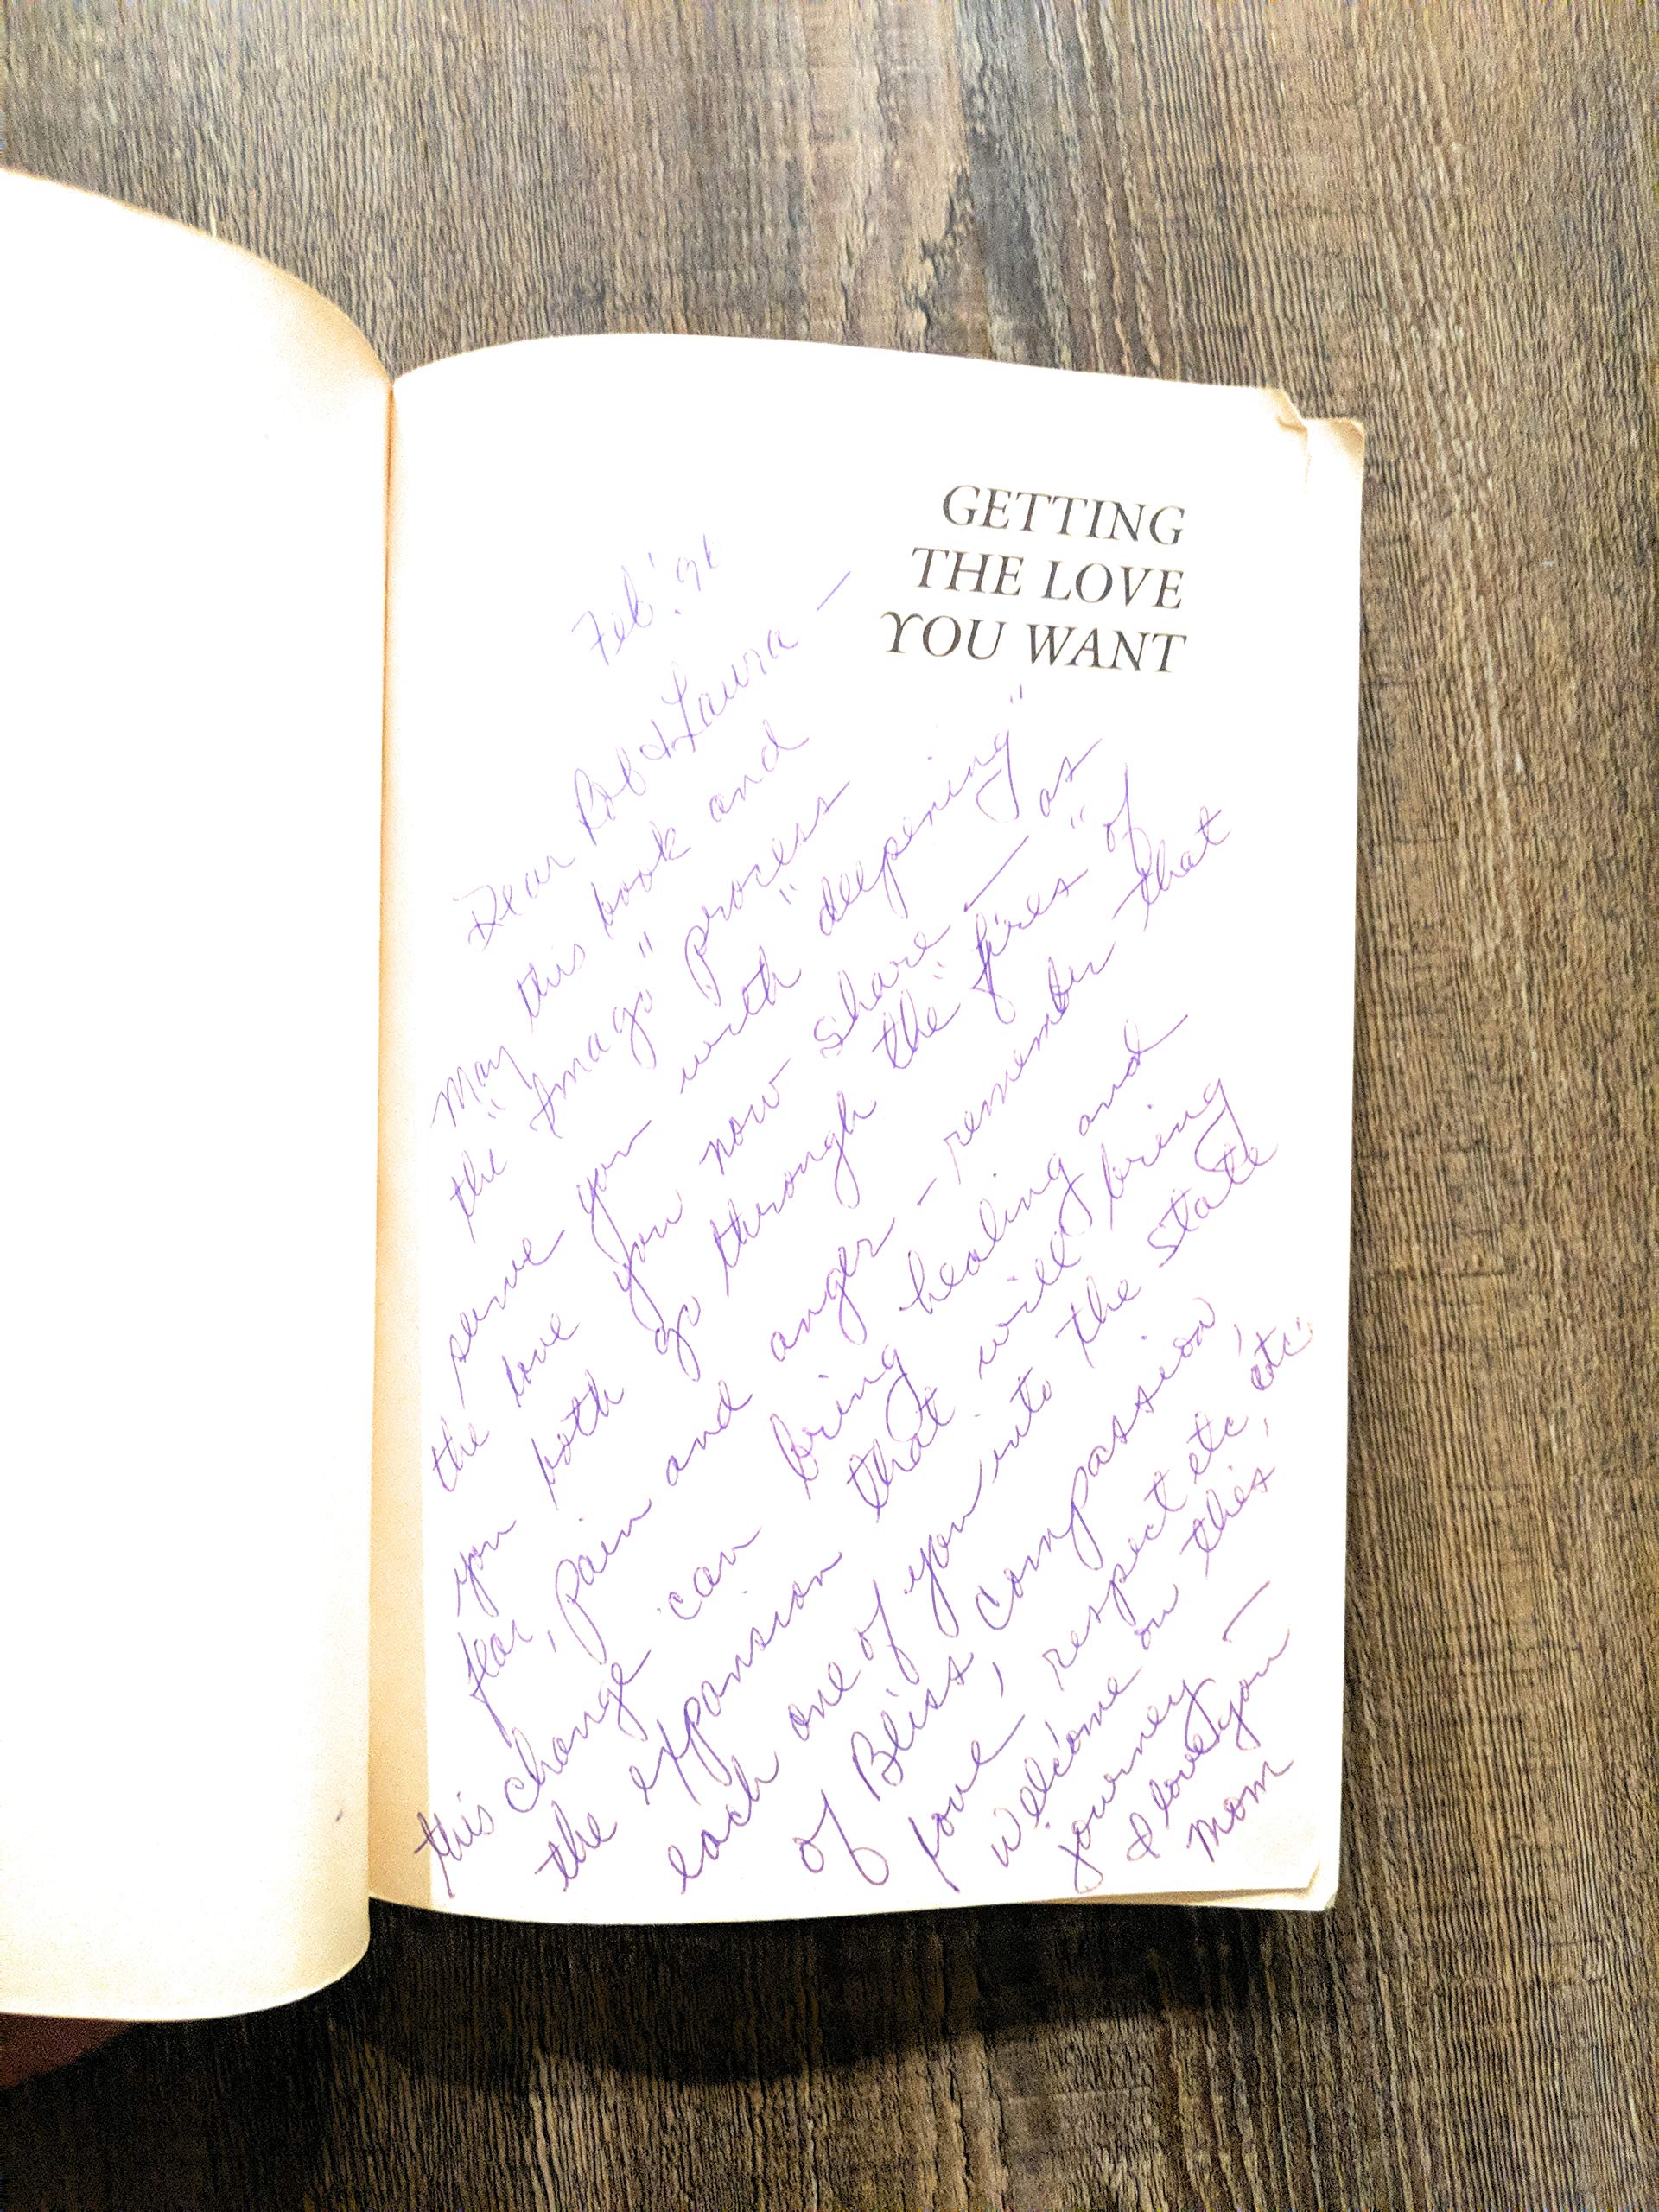 GETTING
THE LOVE
YOU WANT
Feb '91
Dear Rob & Laura —
May this book and
the "Imago" process
serve you with "deepening"
the love you now share — as
you both go through the "fires" of
fear, pain and anger – remember that
this change can bring healing and
the expansion that will bring
each one of you into the state
of Bliss, compassion,
love, respect etc, etc.
Welcome on this
journey
I love you —
Mom